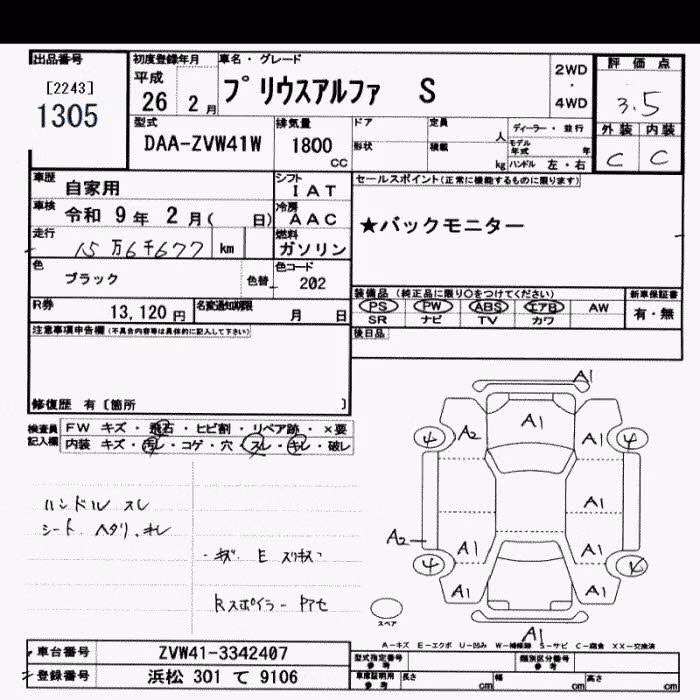 出品番号
[2243]
1305
初度登録年月
平成
26年 2月
車名・グレード
プリウスアルファ S
2WD
・
4WD
評価点
3.5
外装 内装
C C
型式
DAA-ZVW41W
排気量
1800
CC
ドア
形状
定員
人
積載
kg
ディーラー・並行
モデル年式
年
ハンドル 左・右
車歴
自家用
シフト
IAT
車検
令和 9年 2月( 日)
冷房
AAC
走行
15万6千677 km
燃料
ガソリン
色
ブラック
色替
色コード
202
セールスポイント(正常に機能するものに限ります)
★バックモニター
R券
13,120円
名変通知期限
月 日
装備品 (純正品に限り○をつけてください)
PS PW ABS エアB AW
SR ナビ TV カワ
新車保証書
有・無
後日品
注意事項申告欄(不具合内容等は具体的に記入して下さい)
修復歴 有〔箇所 〕
検査員
記入欄
FW キズ・飛石・ヒビ割・リペア跡・×要
内装 キズ・汚レ・コゲ・穴・スレ・キレ・破レ
ハンドル スレ
シート ヘタリ.キレ
・キズ E スリキズ
Rスポイラー
A1
A2 A1
4 4
A1
A2
A1 A1
4
A1 A1
A1
スペア
A-キズ E-エクボ U-凹み W-補修跡 S-サビ C-腐食 XX-交換済
車台番号
ZVW41-3342407
登録番号
浜松 301 て 9106
型式指定番号
参考
類別区分番号
参考
車庫証明用
参考
長さ cm
幅 cm
高さ cm